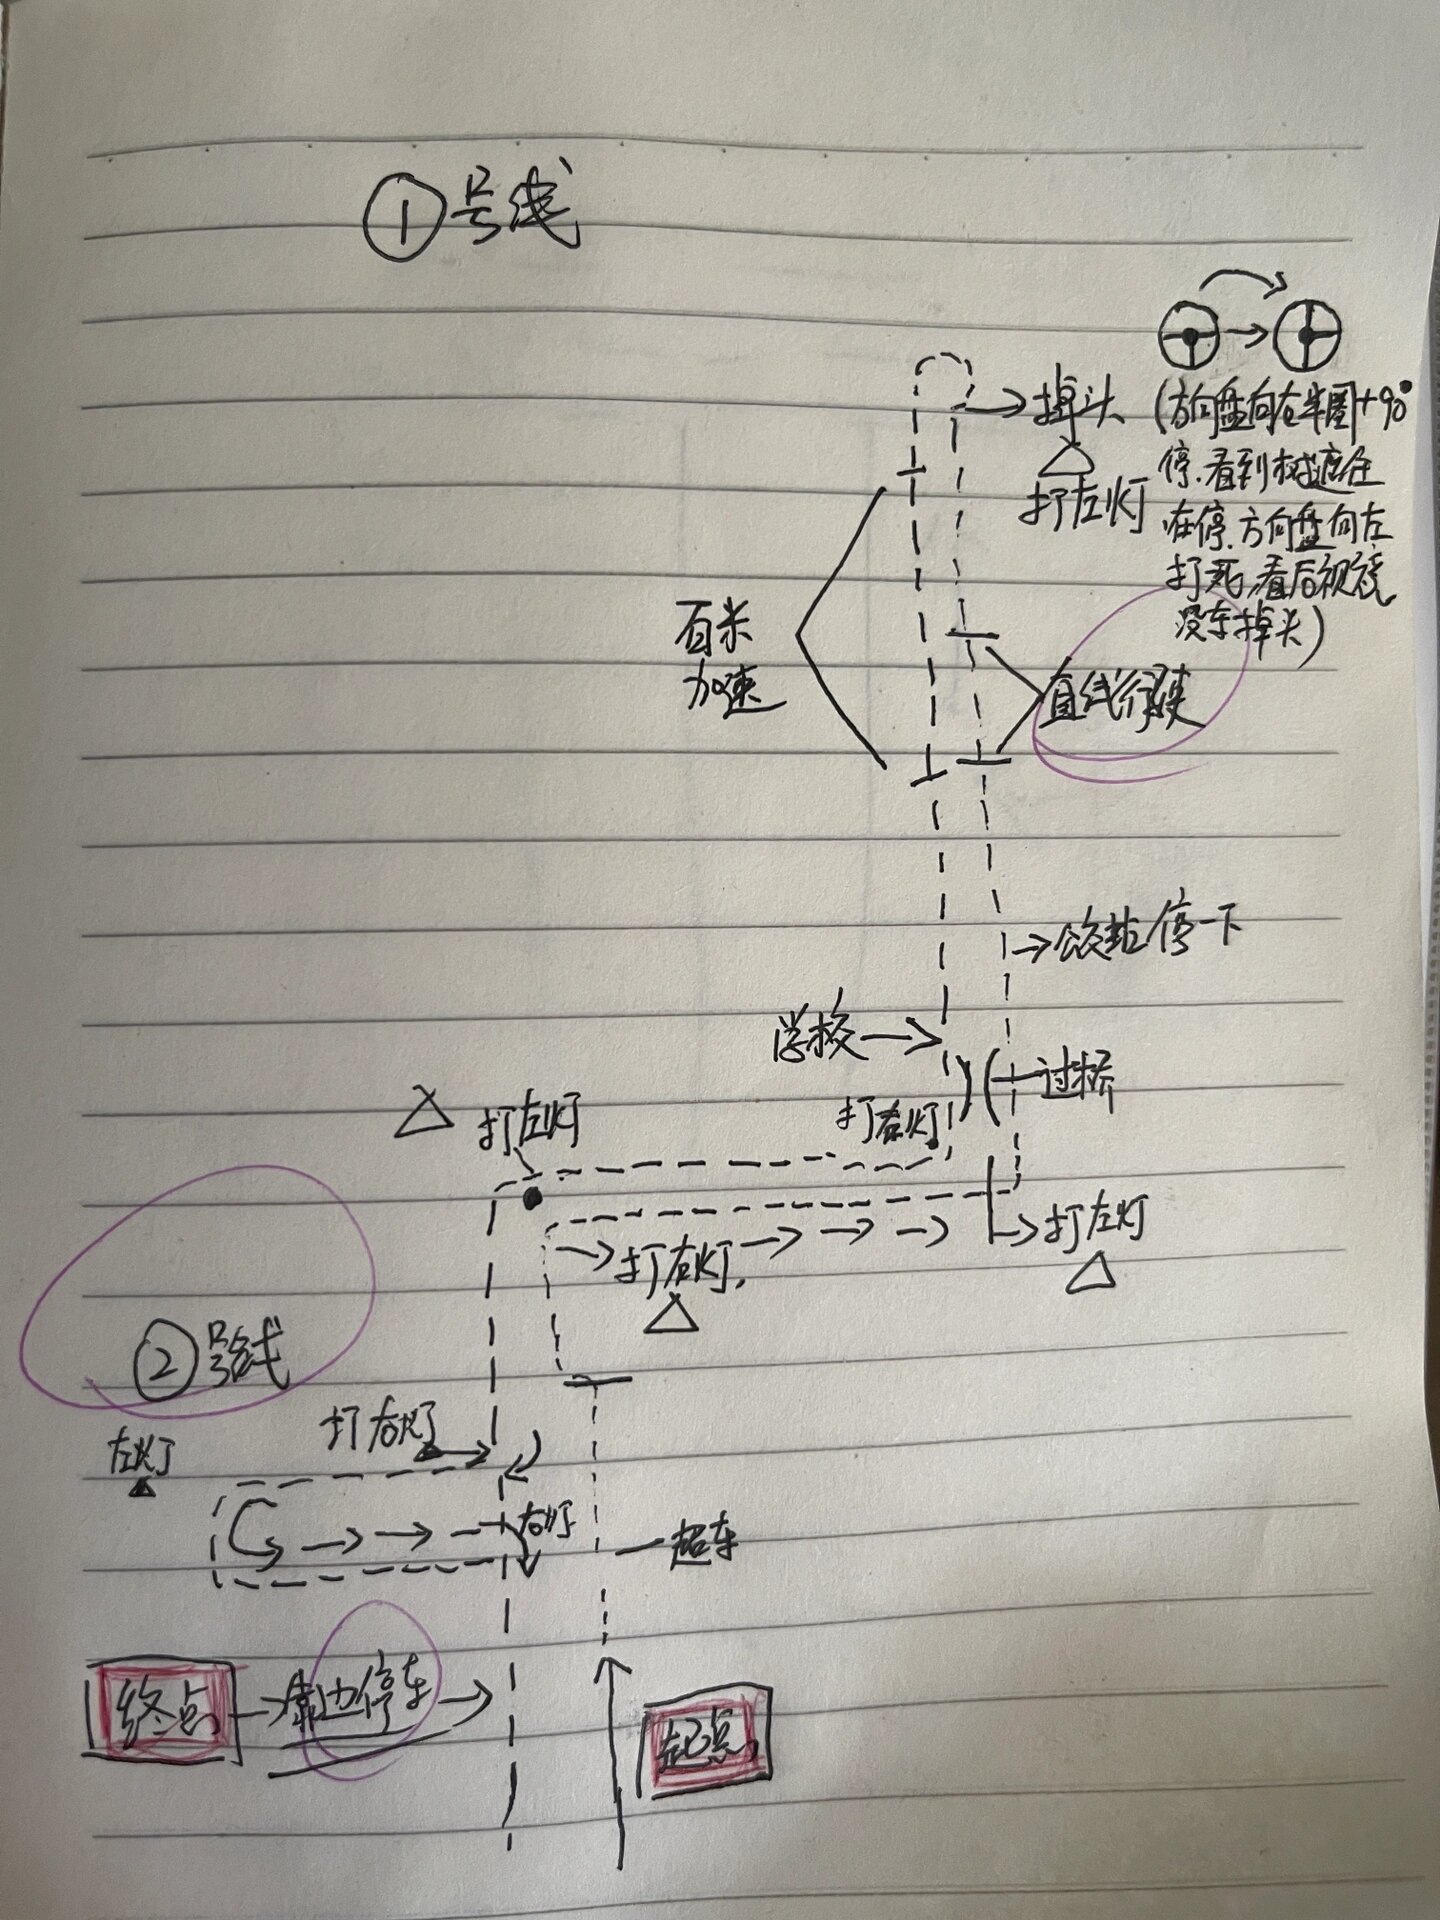 ①号线
掉头
(方向盘向右半圈+90°
停.看到树遮住
在停.方向盘向左
打死,看后视镜
没车掉头)
打左灯
百米
加速
直线行驶
公交站停一下
学校
过桥
打左灯
打右灯
打左灯
打右灯.
②号线
打右灯
左灯
右灯
超车
终点
靠边停车
起点